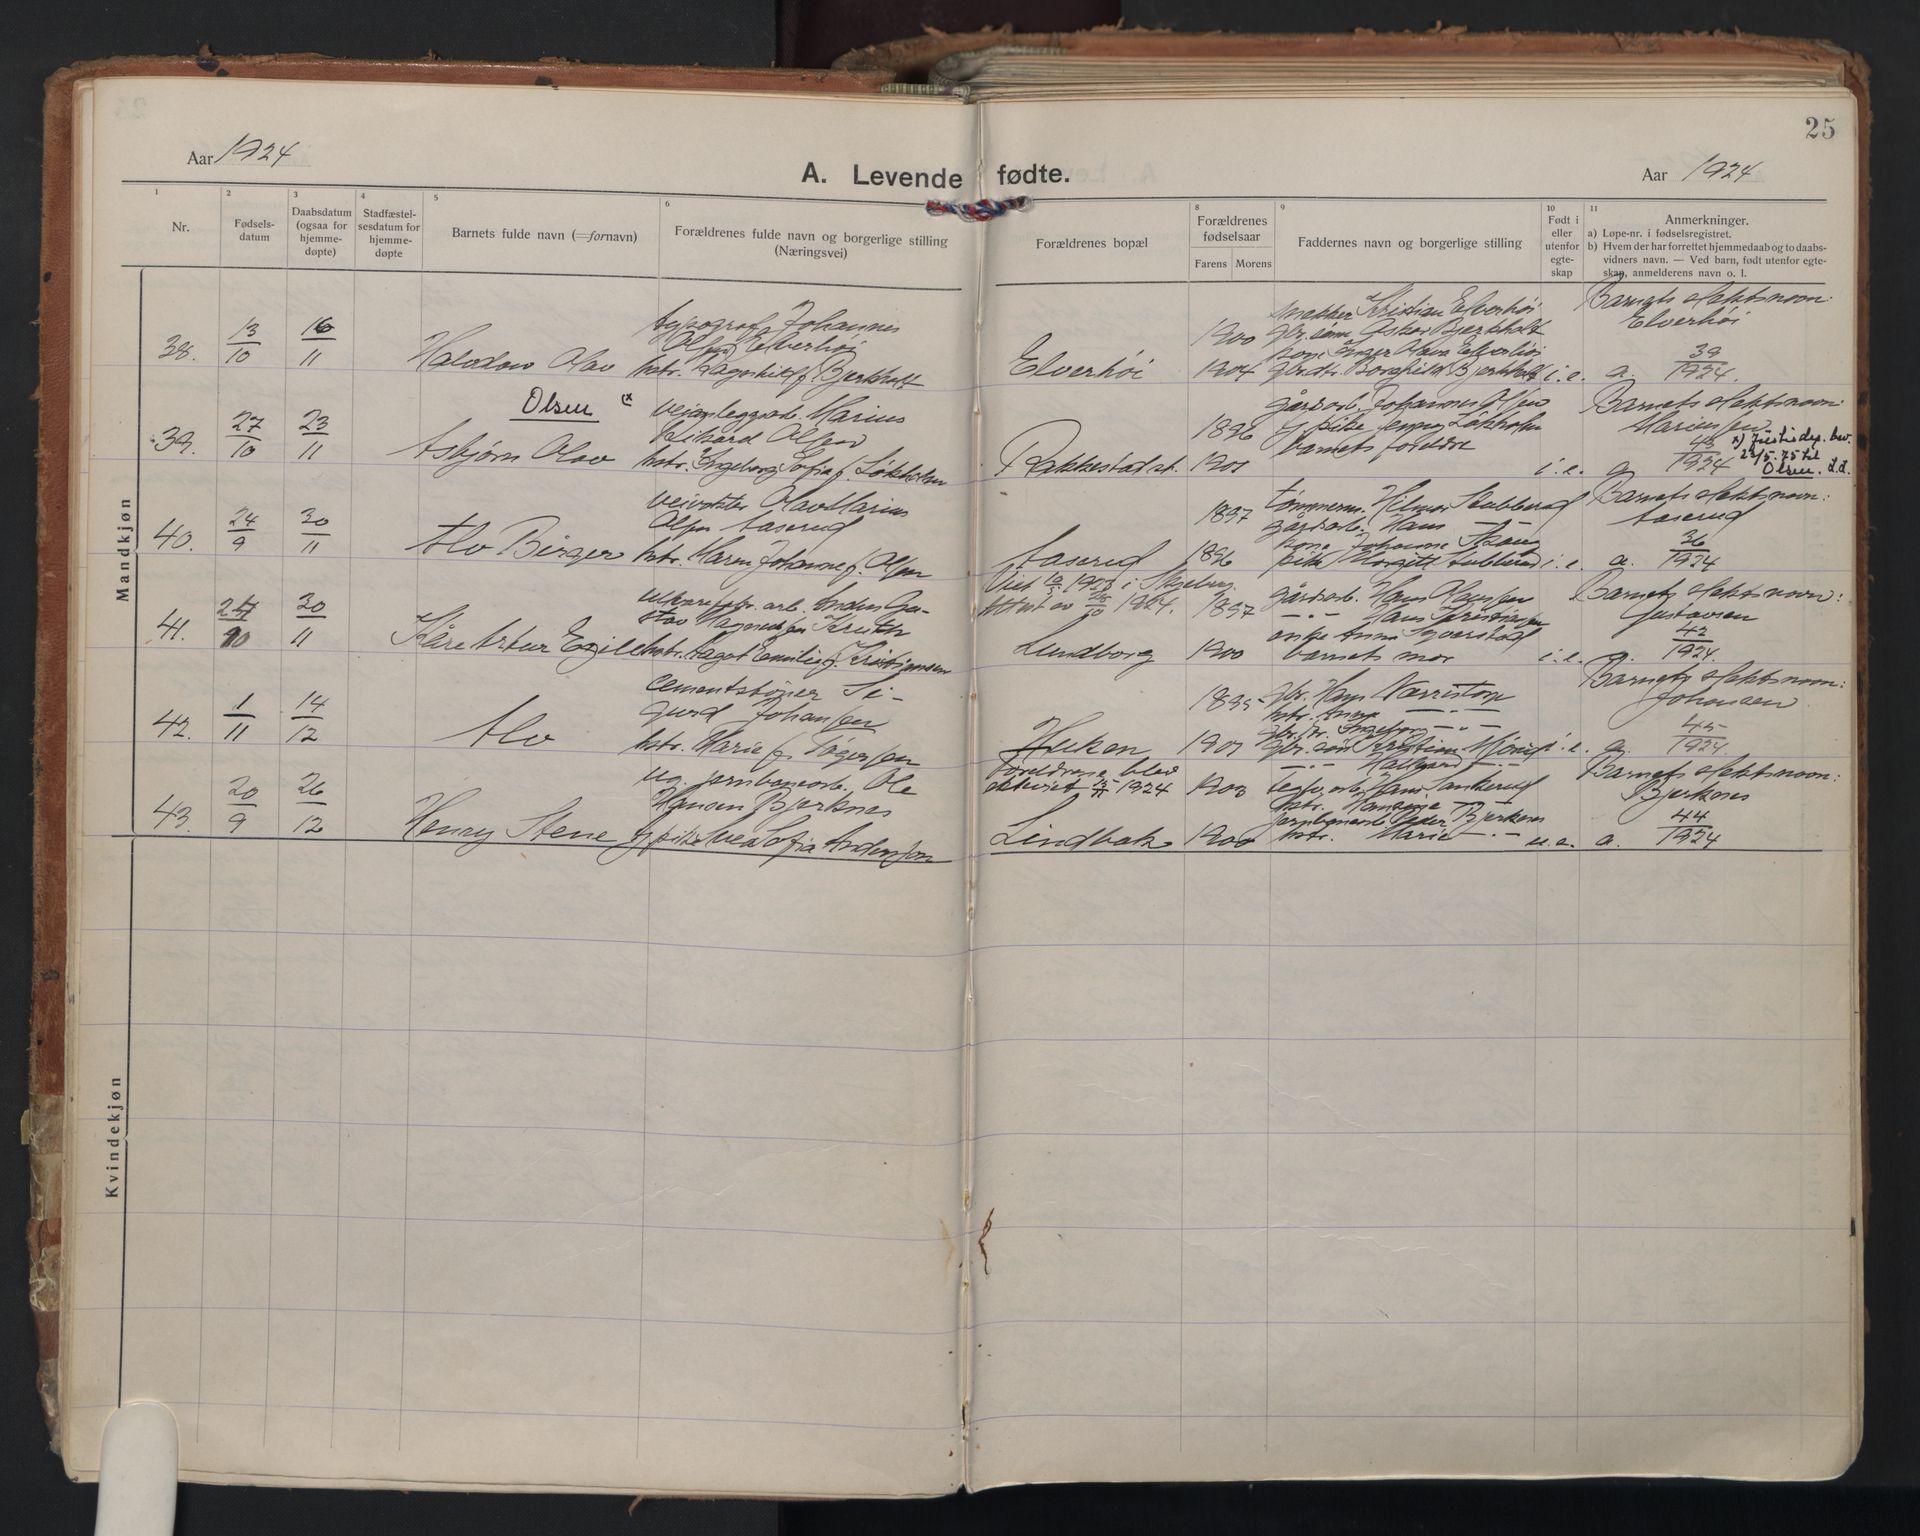 25
Aar 1924
A. Levende fødte.
Aar 1924
1
2
3
4
5
6
8
9
10
11
Nr.
Fødsels-
datum
Daabsdatum
(ogsaa for
hjemme-
døpte)
Stadfæstel-
sesdatum for
hjemme-
døpte
Barnets fulde navn (=fornavn)
Forældrenes fulde navn og borgerlige stilling
(Næringsvei)
Forældrenes bopæl
Forældrenes
fødselsaar
Farens
Morens
Faddernes navn og borgerlige stilling
Født i
eller
utenfor
egte-
skap
Anmerkninger.
a) Løpe-nr. i fødselsregistret.
b) Hvem der har forrettet hjemmedaab og to daabs-
vidners navn. — Ved barn, født utenfor egte-
skap, anmelderens navn o. l.
Mandkjøn
38.
13/10
16/11
Halvdan Olav
typograf Johannes
Olsen Elverhöi
hstr. Ragnhild f. Bjerkholt
Elverhöi
1900
1904
snekker Kristian Elverhöi
gbr. sönn Oskar Bjerkholt
kone Inger Olava Elverhöi
gbrdtr. Borghild Bjerkholt
i. e.
Barnets slektsnavn:
Elverhöi
a. 39/1924.
39.
27/10
23/11
Olsen x)
Asbjørn Olav
veianleggsarb. Marius
Rikard Olsen
hstr. Ingeborg Sofia f. Løkholm
Rakkestad st.
1896
1901
gårdarb. Johannes Olsen
pike Jenny Løkholm
barnets foreldre
i. e.
Barnets slektsnavn:
Mariussen
a. 43/1924
x) Justisdep. bev.
22/5.75 til
Olsen.
40.
24/9
30/11
Alv Birger
veivokter Olav Marius
Olsen Aaserud
hstr. Maren Johanne f. Olsen
Aaserud
1897
1896
tömmerm. Hilmar Stubberud
gårdarb. Hans — " —
kone Johanne
pike Margit Stubberud
i. e.
Barnets slektsnavn:
Aaserud
a. 36/1924
41.
24/10
30/11
Kåre Artur Egil
arb. Anders Gu-
stav Magnussen
hstr. Aagot Emilie f. Kristiansen
Lundborg
1897
1900
gårdarb. Hans Hansen
— " — Hans Kristiansen
enke Anna
barnets mor
i. e.
Barnets slektsnavn:
Gustavsen
a. 42/1924.
42.
1/11
14/12
Alv
cementstöper Si-
gurd Johansen
hstr. Marie f.
1895
1901
gbr. Hans
hstr. Anna — " —
gbr. dtr. Ingeborg
gbr. sön Kristian
— " — Halvard — " —
i. e.
Barnets slektsnavn:
Johansen
a. 45/1924
43.
20/9
26/12
Henry Stene
ug. jernbanearb. Ole
Hansen Bjerknes
pike Svea Sofia Andersson
Foreldrene blev
1924
Lindbak
1903
1900
Hans Sankerud
hstr. Hansine — " —
jernbanearb. Peder Bjerknes
hstr. Marie — " —
u. e.
Barnets slektsnavn:
Bjerknes
a. 44/1924
Kvindekjøn